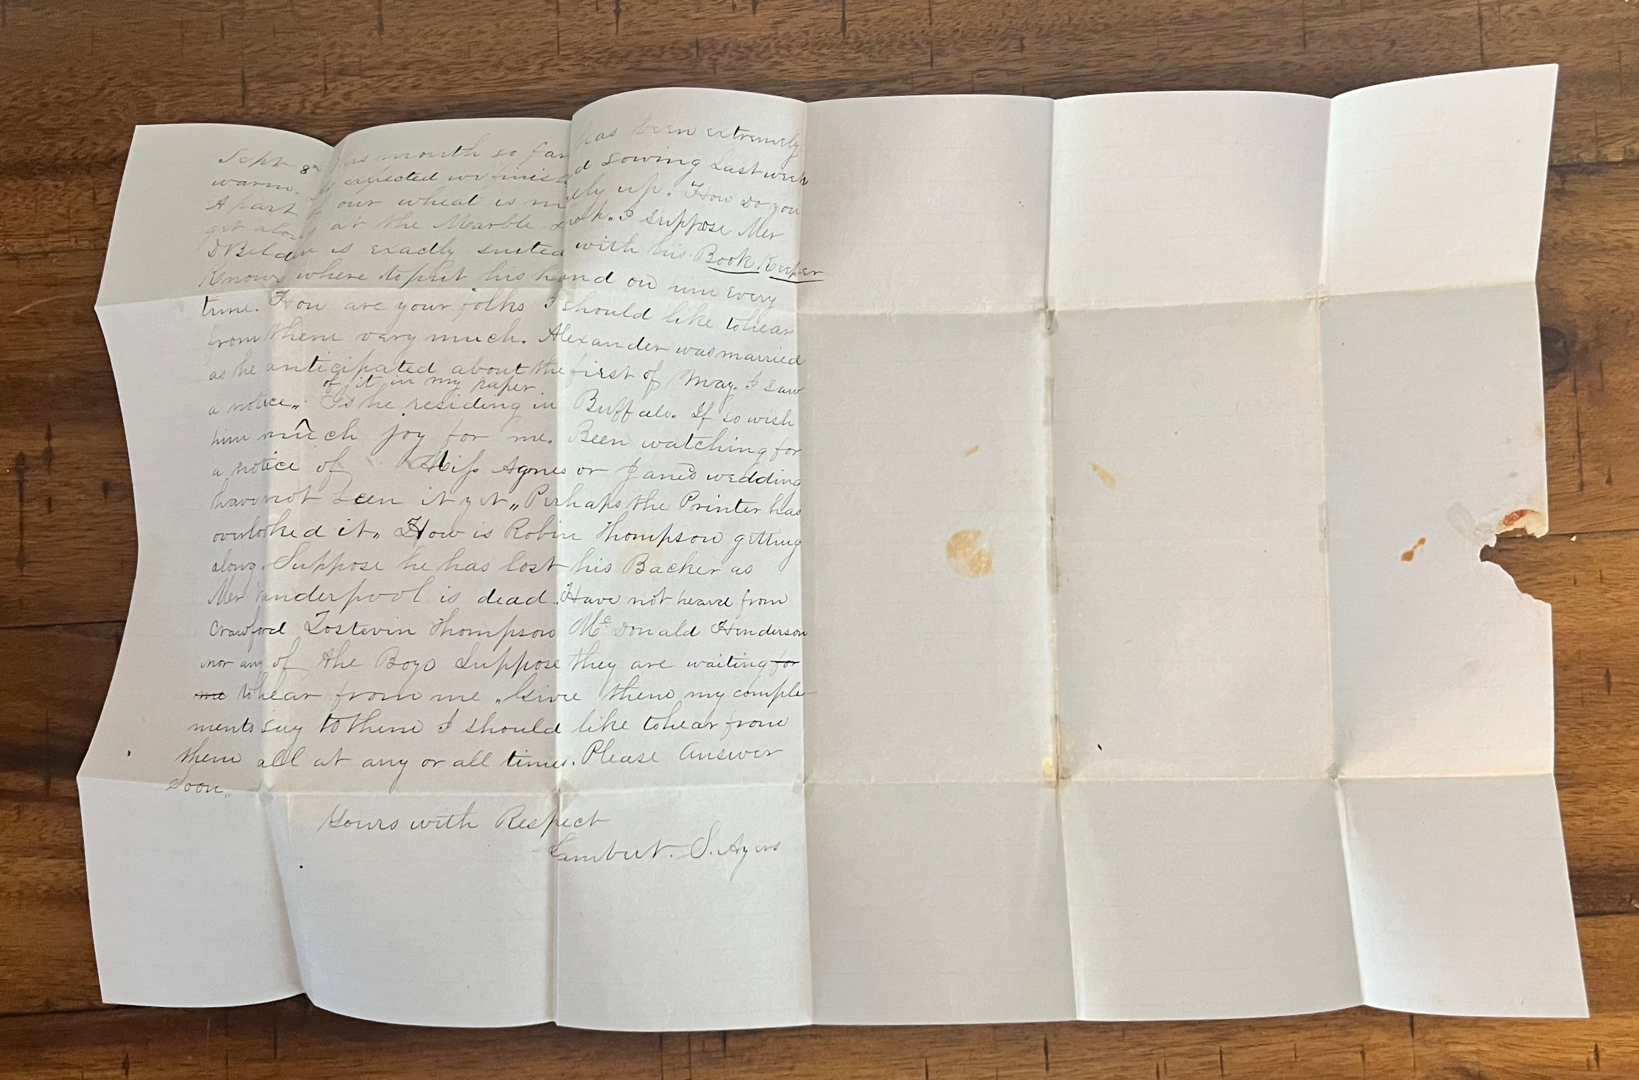 Sept 8th This month so far has been extremely
warm. expected we finish d sowing Last week
A part of our wheat is nicely up. How do you
get along at the Marble I suppose Mer
DBeldar is exactly suited with his Book Keeper
Knows where to put his hand on him every
time. How are your folks I should like to hear
from them very much. Alexander was married
as he anticipated about the first of May. I saw
of it in my paper
a notice,, Is he residing in Buffalo. If so wish
him much joy for me. Been watching for
a notice of Miss Agnes or Janes wedding
have not seen it yet,, Perhaps the Printer has
overlooked it. How is Robin Thompson getting
along. Suppose he has lost his Backer as
Mer Vanderpool is dead. Have not heard from
Crawford Tostevin Thompson McDonald Henderson
nor any of the Boys Suppose they are waiting for
me to hear from me. Give them my comple-
ments say to them I should like to hear from
them all at any or all times. Please Answer
Soon.
Yours with Respect
Lambert. S. Ayers